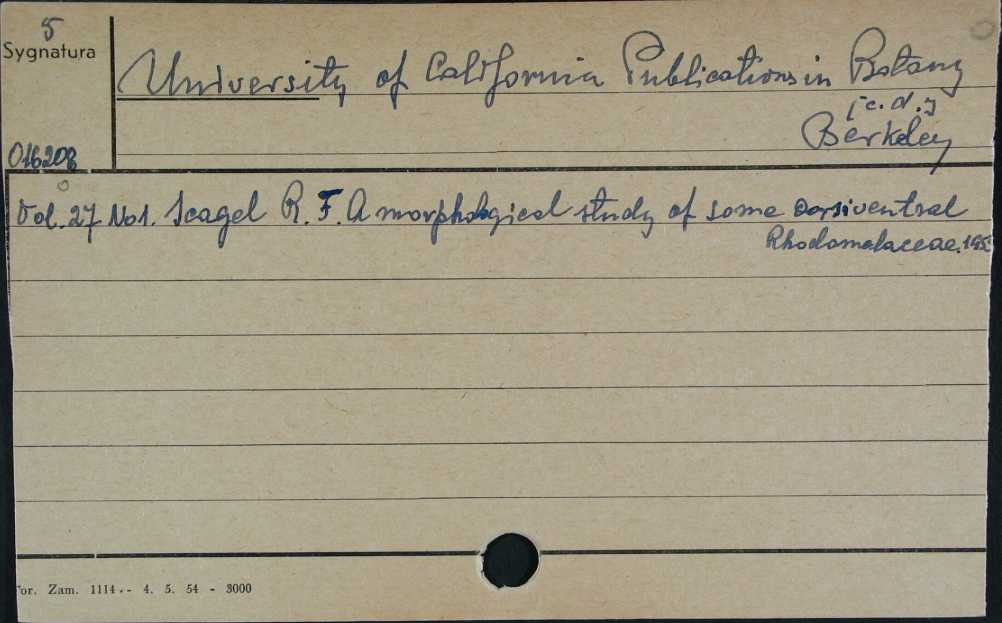 5
Sygnatura
University of California Publications in Botany
[c.d.]
Berkeley
016208
Vol. 27 No1. Scagel R. F. A morphological study of some dorsiventral
Rhodomelaceae. 195
For. Zam. 1114.- 4. 5. 54 - 3000